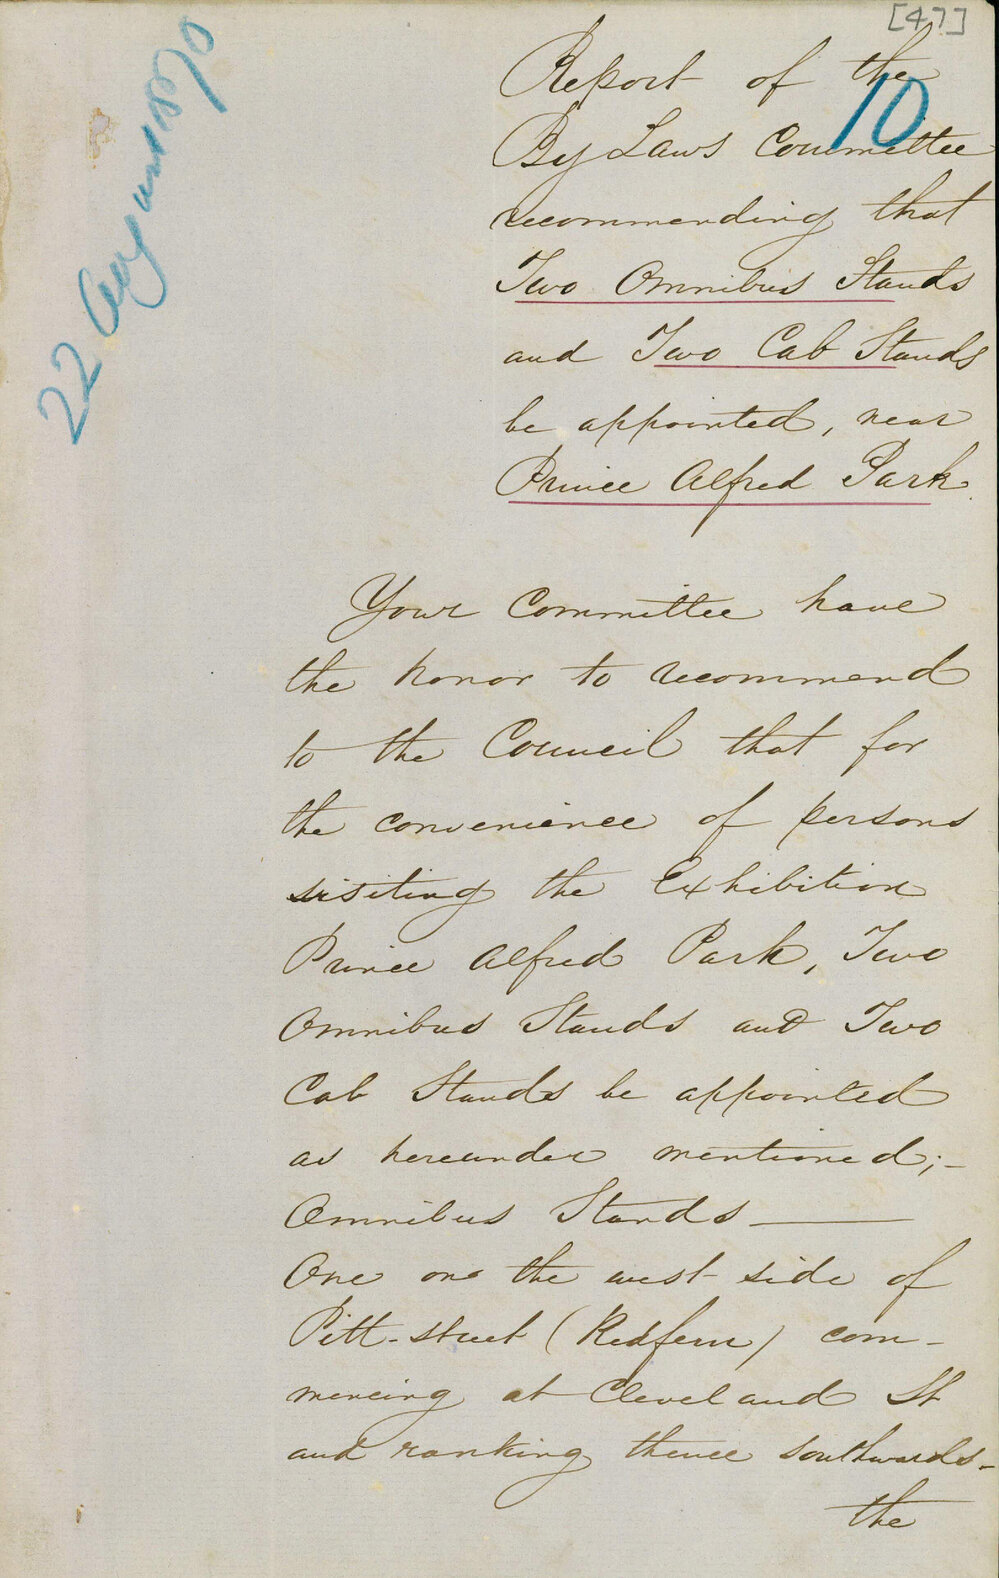 [47]
10
22 August 1870
Report of the
By Laws Committee
recommending that
Two Omnibus Stands
and Two Cab Stands
be appointed, near
Prince Alfred Park.
Your Committee have
the honor to recommend
to the Council that for
the convenience of persons
visiting the Exhibition
Prince Alfred Park, Two
Omnibus Stands and Two
Cab Stands be appointed
as hereunder mentioned;-
Omnibus Stands —
One on the west side of
Pitt-street (Redfern) com-
mencing at Cleveland St
and ranking thence Southwards-
the